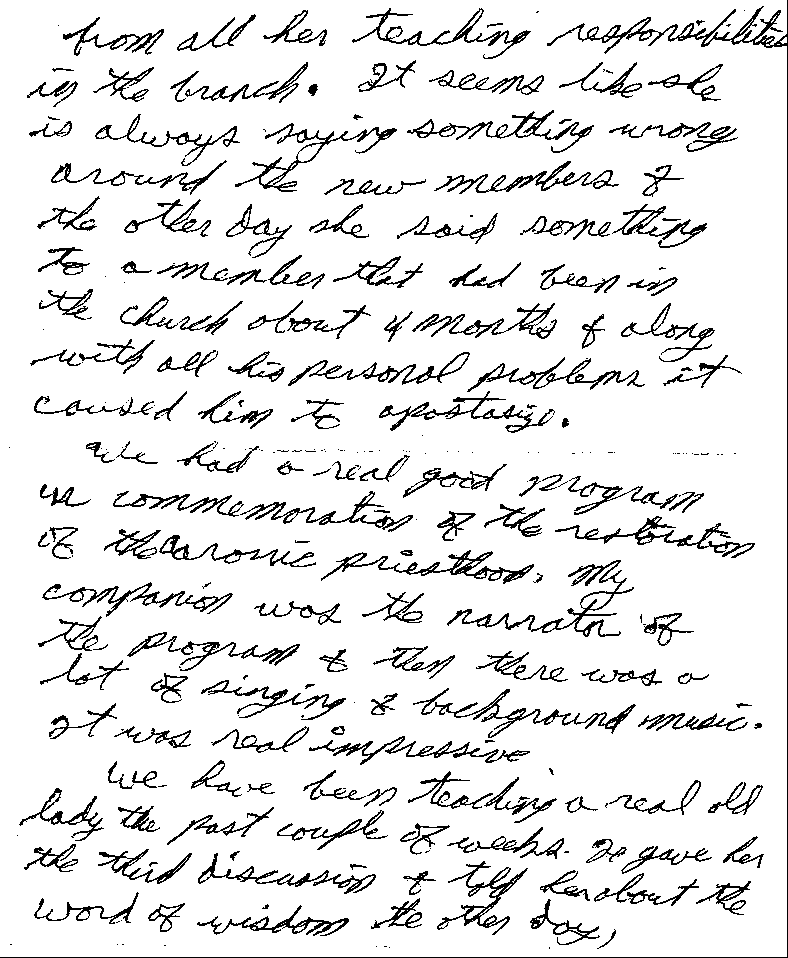 from all her teaching responsibilities
in the branch. It seems like she
is always saying something wrong
around the new members &
the other day she said something
to a member that had been in
the church about 4 months & along
with all his personal problems it
caused him to apostasize.
We had a real good program
in commemoration of the restoration
of the aaronic priesthood. My
companion was the narrator of
the program & then there was a
lot of singing & background music.
It was real impressive
We have been teaching a real old
lady the past couple of weeks. We gave her
the third discussion & told her about the
word of wisdom the other day,